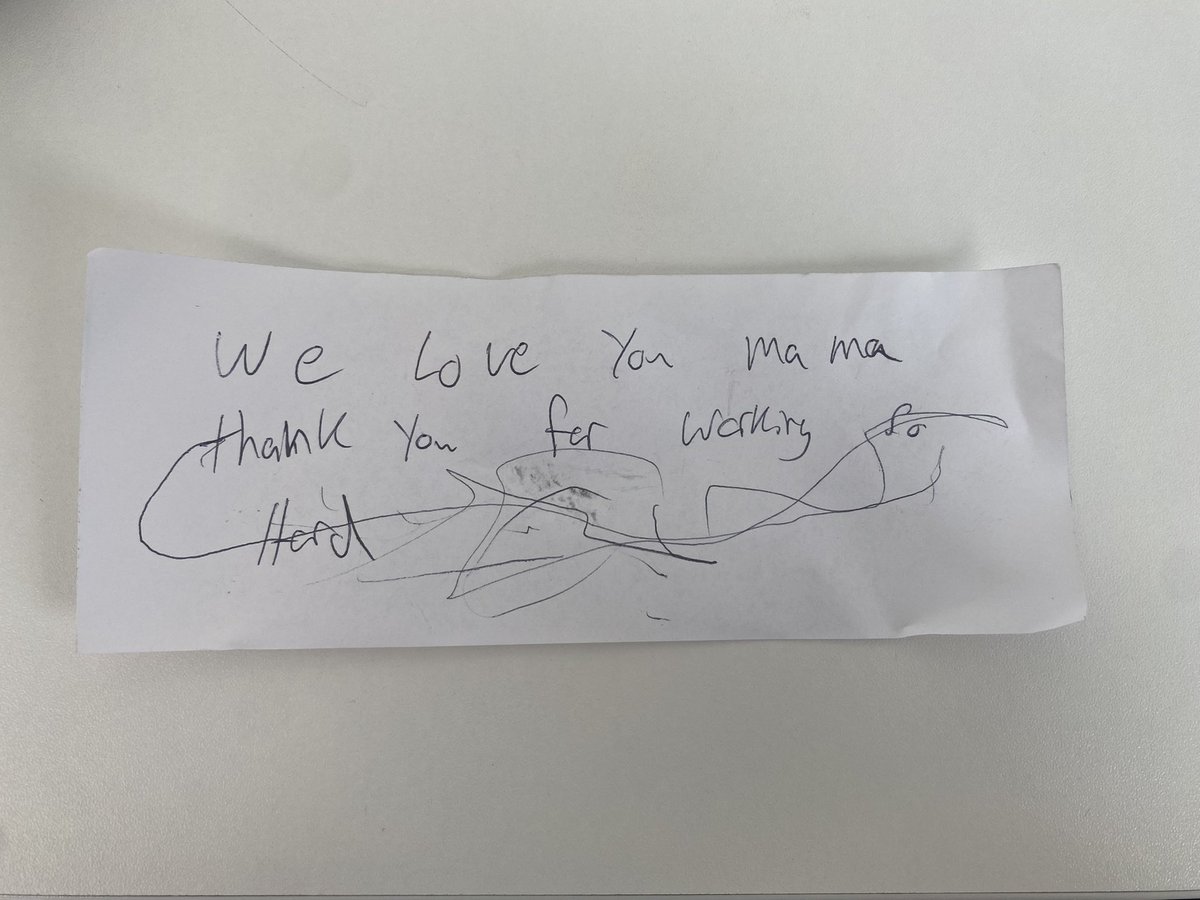 We Love You mama
thank You for working So
Hard